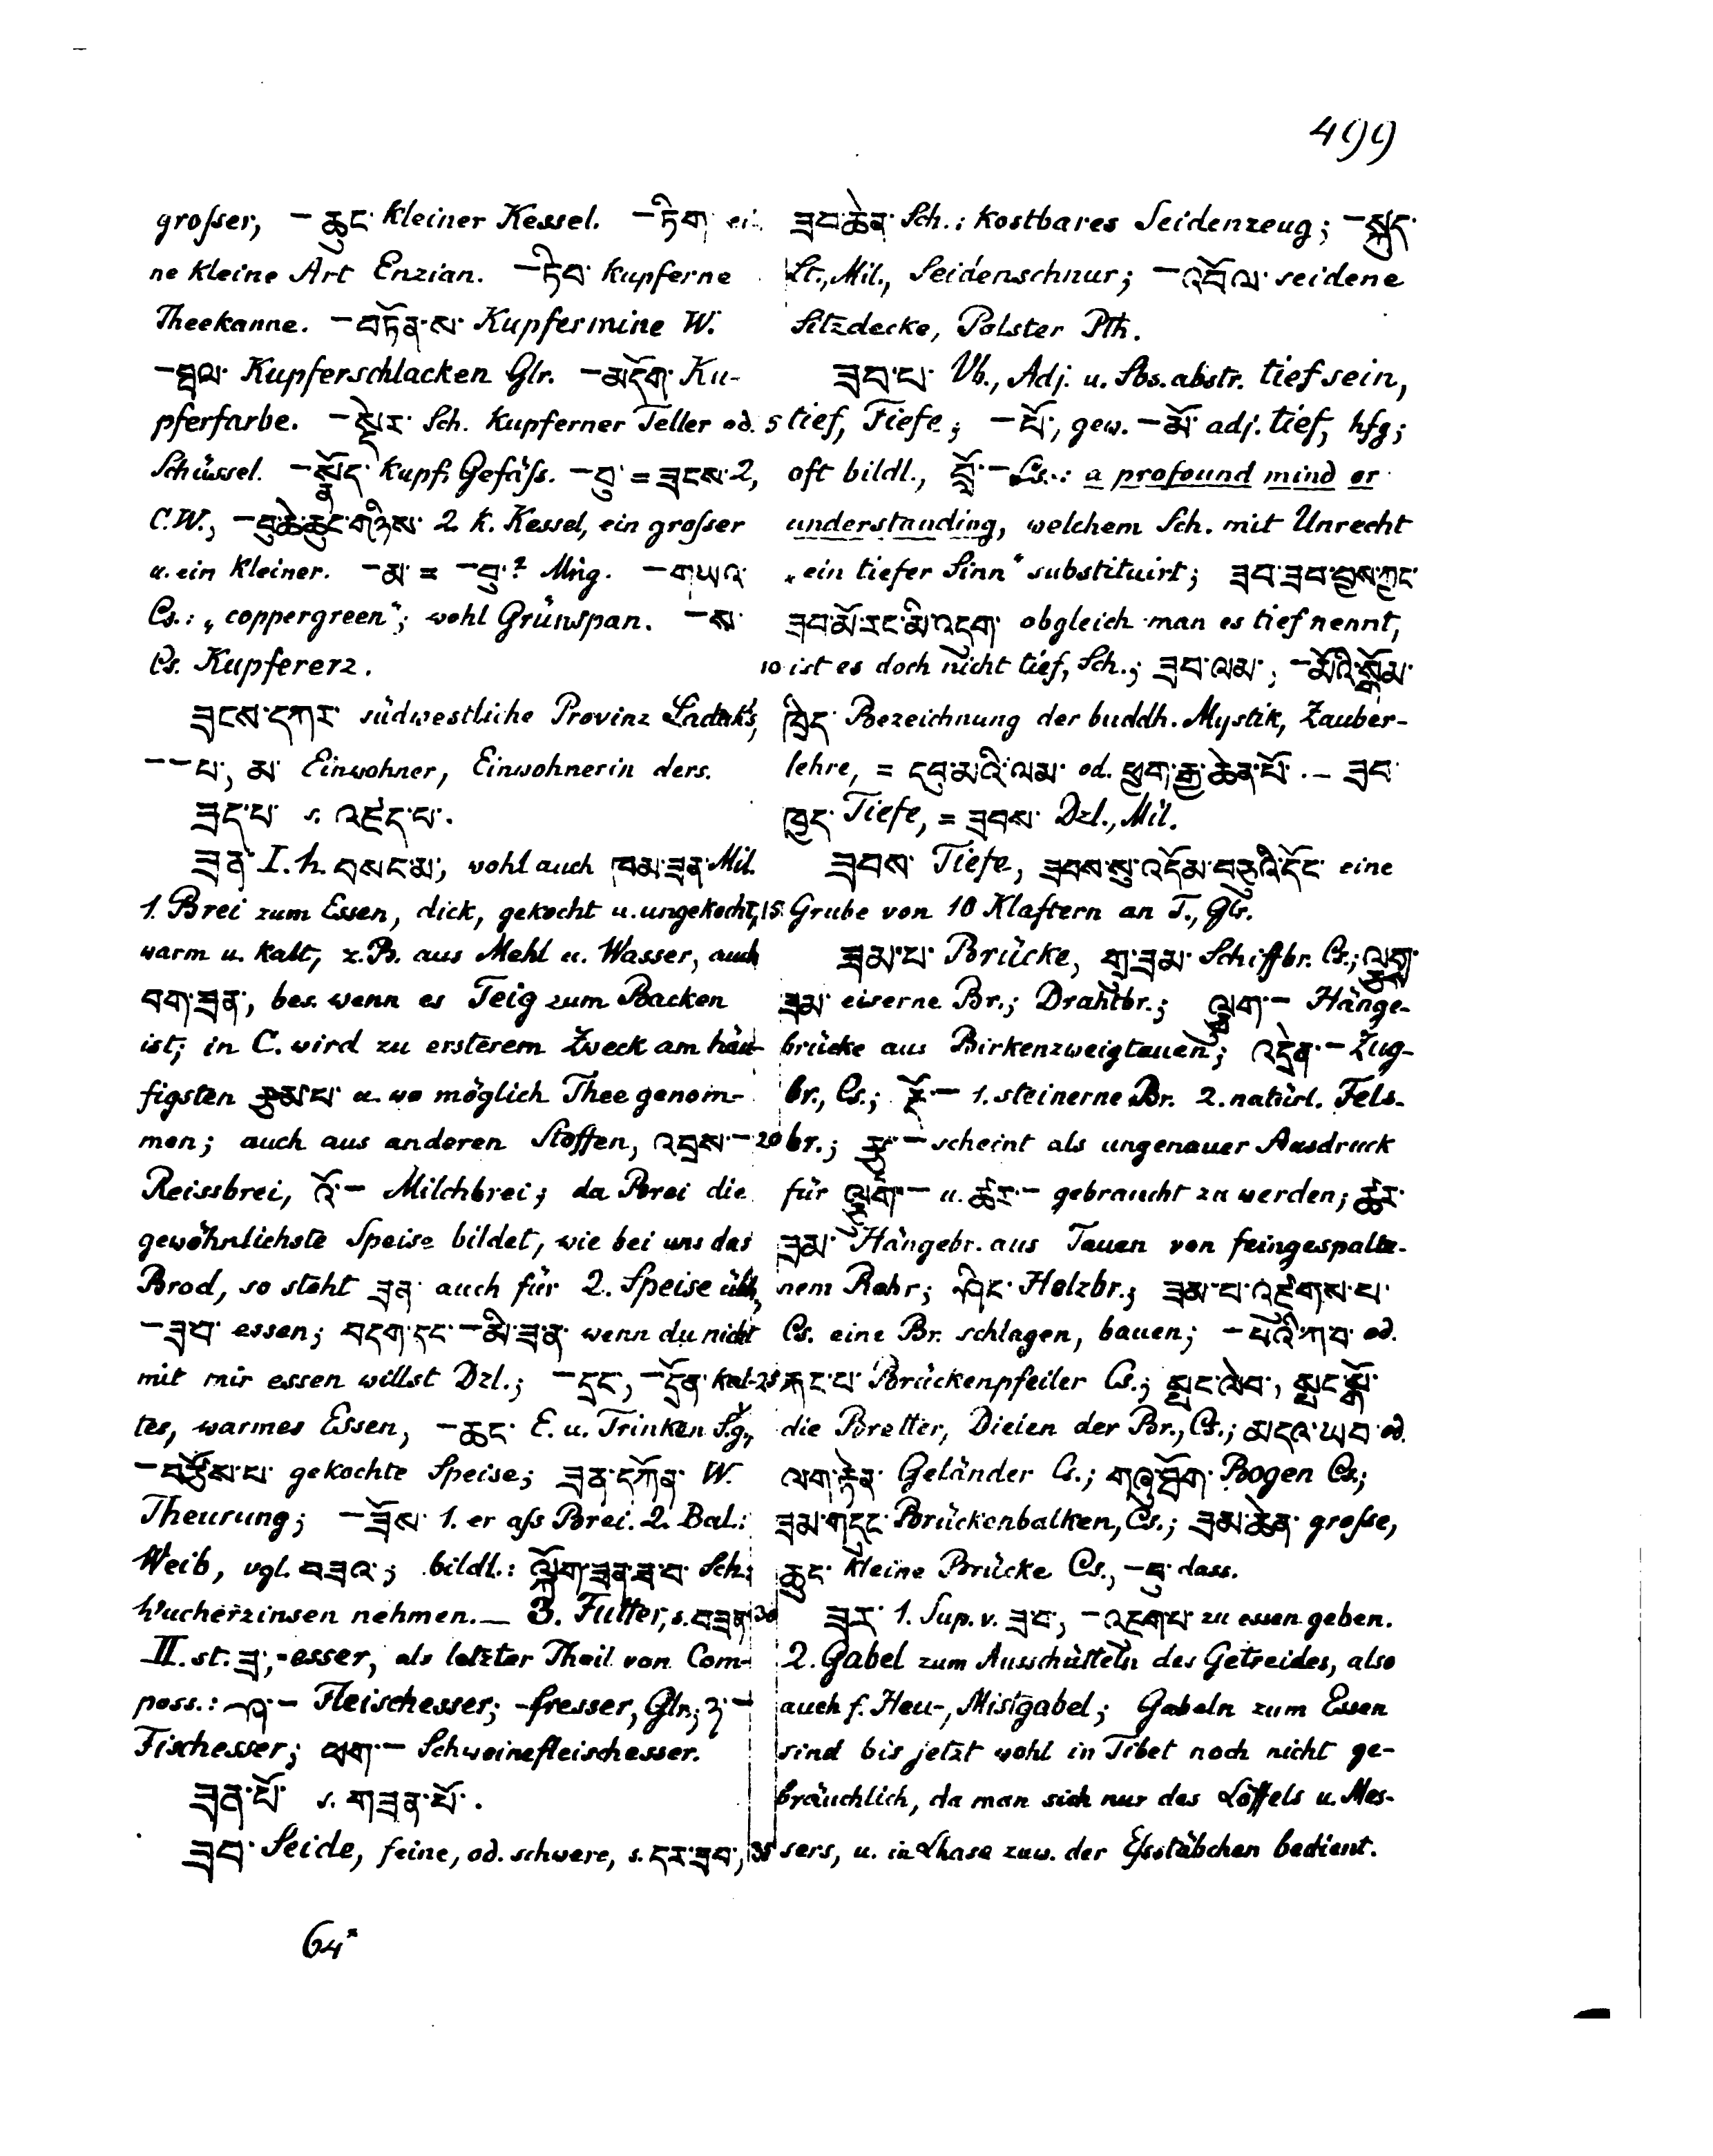 499
groſser, – ཆུང་ kleiner Kessel. – ཏིག་ ei-
ne kleine Art Enzian. – ཏིབ་ kupferne
Theekanne. – བཏོན་ས་ Kupfermine W.
– Kupferschlacken Glr. – མདོག་ Ku-
pferfarbe. – སྡེར་ Sch. kupferner Teller od.
Schüssel. – སྣོད་ kupf. Gefäſs. – བུ་ = ཟངས་ 2,
C.W., – བུ་ཆེ་ཆུང་གཉིས་ 2 k. Kessel, ein groſser
u. ein kleiner. – མ་ = – བུ་? Mṅg. – གཡའ་
Cs.: „coppergreen“; wohl Grünspan. – ས་
Cs. Kupfererz.
ཟངས་དཀར་ südwestliche Provinz Ladak's,
– – པ་, མ་ Einwohner, Einwohnerin ders.
ཟད་པ་ s. འཛད་པ་.
ཟན་ I. h. བསང་མ་, wohl auch བམ་ཟན་ Mil.
1. Brei zum Essen, dick, gekocht u. ungekocht,
warm u. kalt, z.B. aus Mehl u. Wasser, auch
བག་ཟན་, bes. wenn es Teig zum Backen
ist; in C. wird zu ersterem Zweck am häu-
figsten རྩམ་པ་ u. wo möglich Thee genom-
men; auch aus anderen Stoffen, འབྲས་ –
Reissbrei, འོ་ – Milchbrei; da Brei die
gewöhnlichste Speise bildet, wie bei uns das
Brod, so steht ཟན་ auch für 2. Speise übh,
– ཟབ་ essen; བདག་དང་ – མི་ཟན་ wenn du nicht
mit mir essen willst Dzl.; – དྲང་, – དྲོན་ kal-
tes, warmes Essen, – ཆང་ E. u. Trinken S.g.,
– བཙོས་པ་ gekochte Speise; ཟན་དཀོན་ W.
Theurung; – ཟོས་ 1. er aſs Brei. 2. Bal.:
Weib, vgl. བཟའ་; bildl.: ཟན་ཟ་བ་ Sch.:
Wucherzinsen nehmen. – 3. Futter, s. བཟན་
II. st. ཟ་, -esser, als letzter Theil von Com-
poss.: ཤ་ – Fleischesser; -fresser, Glr.; ཉ་ –
Fischesser; ཕག་ – Schweinefleischesser.
ཟན་པོ་ s. གཟན་པོ་.
ཟབ་ Seide, feine, od. schwere, s. དར་ཟབ་,
ཟབ་ཆེན་ Sch.: kostbares Seidenzeug; – སྐུད་
Lt., Mil., Seidenschnur; – འབོལ་ seidene
Sitzdecke, Polster Pth.
ཟབ་པ་ Vb., Adj. u. Sbs. abstr. tief sein,
5 tief, Tiefe; – པོ་, gew. – མོ་ adj. tief, hfg;
oft bildl., བློ་ – Cs.: a profound mind or
understanding, welchem Sch. mit Unrecht
„ein tiefer Sinn“ substituirt; ཟབ་ཟབ་བྱས་ཀྱང་
ཟབ་མོ་རང་མི་འདུག་ obgleich man es tief nennt,
10 ist es doch nicht tief, Sch.; ཟབ་ལམ་, – མོའི་སྒོམ་
ཁྲིད་ Bezeichnung der buddh. Mystik, Zauber-
lehre, = དབུ་མའི་ལམ་ od. ཕྱག་རྒྱ་ཆེན་པོ་. – ཟབ་
ཁྱད་ Tiefe, = ཟབས་ Dzl., Mil.
ཟབས་ Tiefe, ཟབས་སུ་འདོམ་བཅུའི་དོང་ eine
15 Grube von 10 Klaftern an T., Glr.
ཟམ་པ་ Brücke, གྲུ་ཟམ་ Schiffbr. Cs.; ལྕགས་
ཟམ་ eiserne Br.; Drahtbr.; ལྕུག་ – Hänge-
brücke aus Birkenzweigtauen; འདྲེན་ – Zug-
br., Cs.; རྡོ་ – 1. steinerne Br. 2. natürl. Fels-
20 br.; – scheint als ungenauer Ausdruck
für ལྕུག་ – u. ཚར་ – gebraucht zu werden; ཚར་
ཟམ་ Hängebr. aus Tauen von feingespalte-
nem Rohr; ཤིང་ Holzbr.; ཟམ་པ་འཛུགས་པ་
Cs. eine Br. schlagen, bauen; – པའི་ཀ་བ་ od.
25 རྐང་པ་ Brückenpfeiler Cs.; སྤང་ལེབ་, སྤང་སྒོ་
die Bretter, Dielen der Br., Cs.; མདའ་ཡབ་ od.
ལག་རྟེན་ Geländer Cs.; གཞུ་ཐོག་ Bogen Cs.;
ཟམ་གདང་ Brückenbalken, Cs.; ཟམ་ཆེན་ groſse,
ཆུང་ kleine Brücke Cs., – བུ་ dass.
30 ཟར་ 1. Sup. v. ཟབ་, – འཇུག་པ་ zu essen geben.
2. Gabel zum Ausschütteln des Getreides, also
auch f. Heu-, Mistgabel; Gabeln zum Essen
sind bis jetzt wohl in Tibet noch nicht ge-
bräuchlich, da man sich nur des Löffels u. Mes-
35 sers, u. in Lhasa zuw. der Eſsstäbchen bedient.
64*